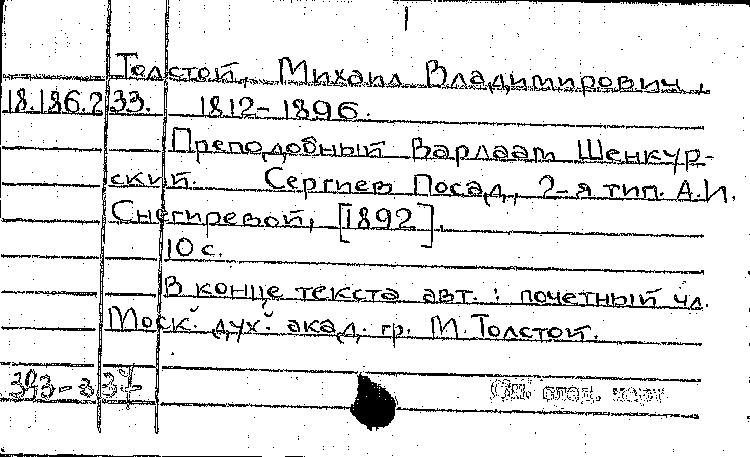 Толстой, Михаил Владимирович,
18.186.2.33. 1812-1896.
Преподобный Варлаам Шенкур-
ский. Сергиев Посад, 2-я тип. А.И.
Снегиревой, [1892].
10 с.
В конце текста авт.: почетный чл.
Моск. дух. акад. гр. М. Толстой.
См. след. карт